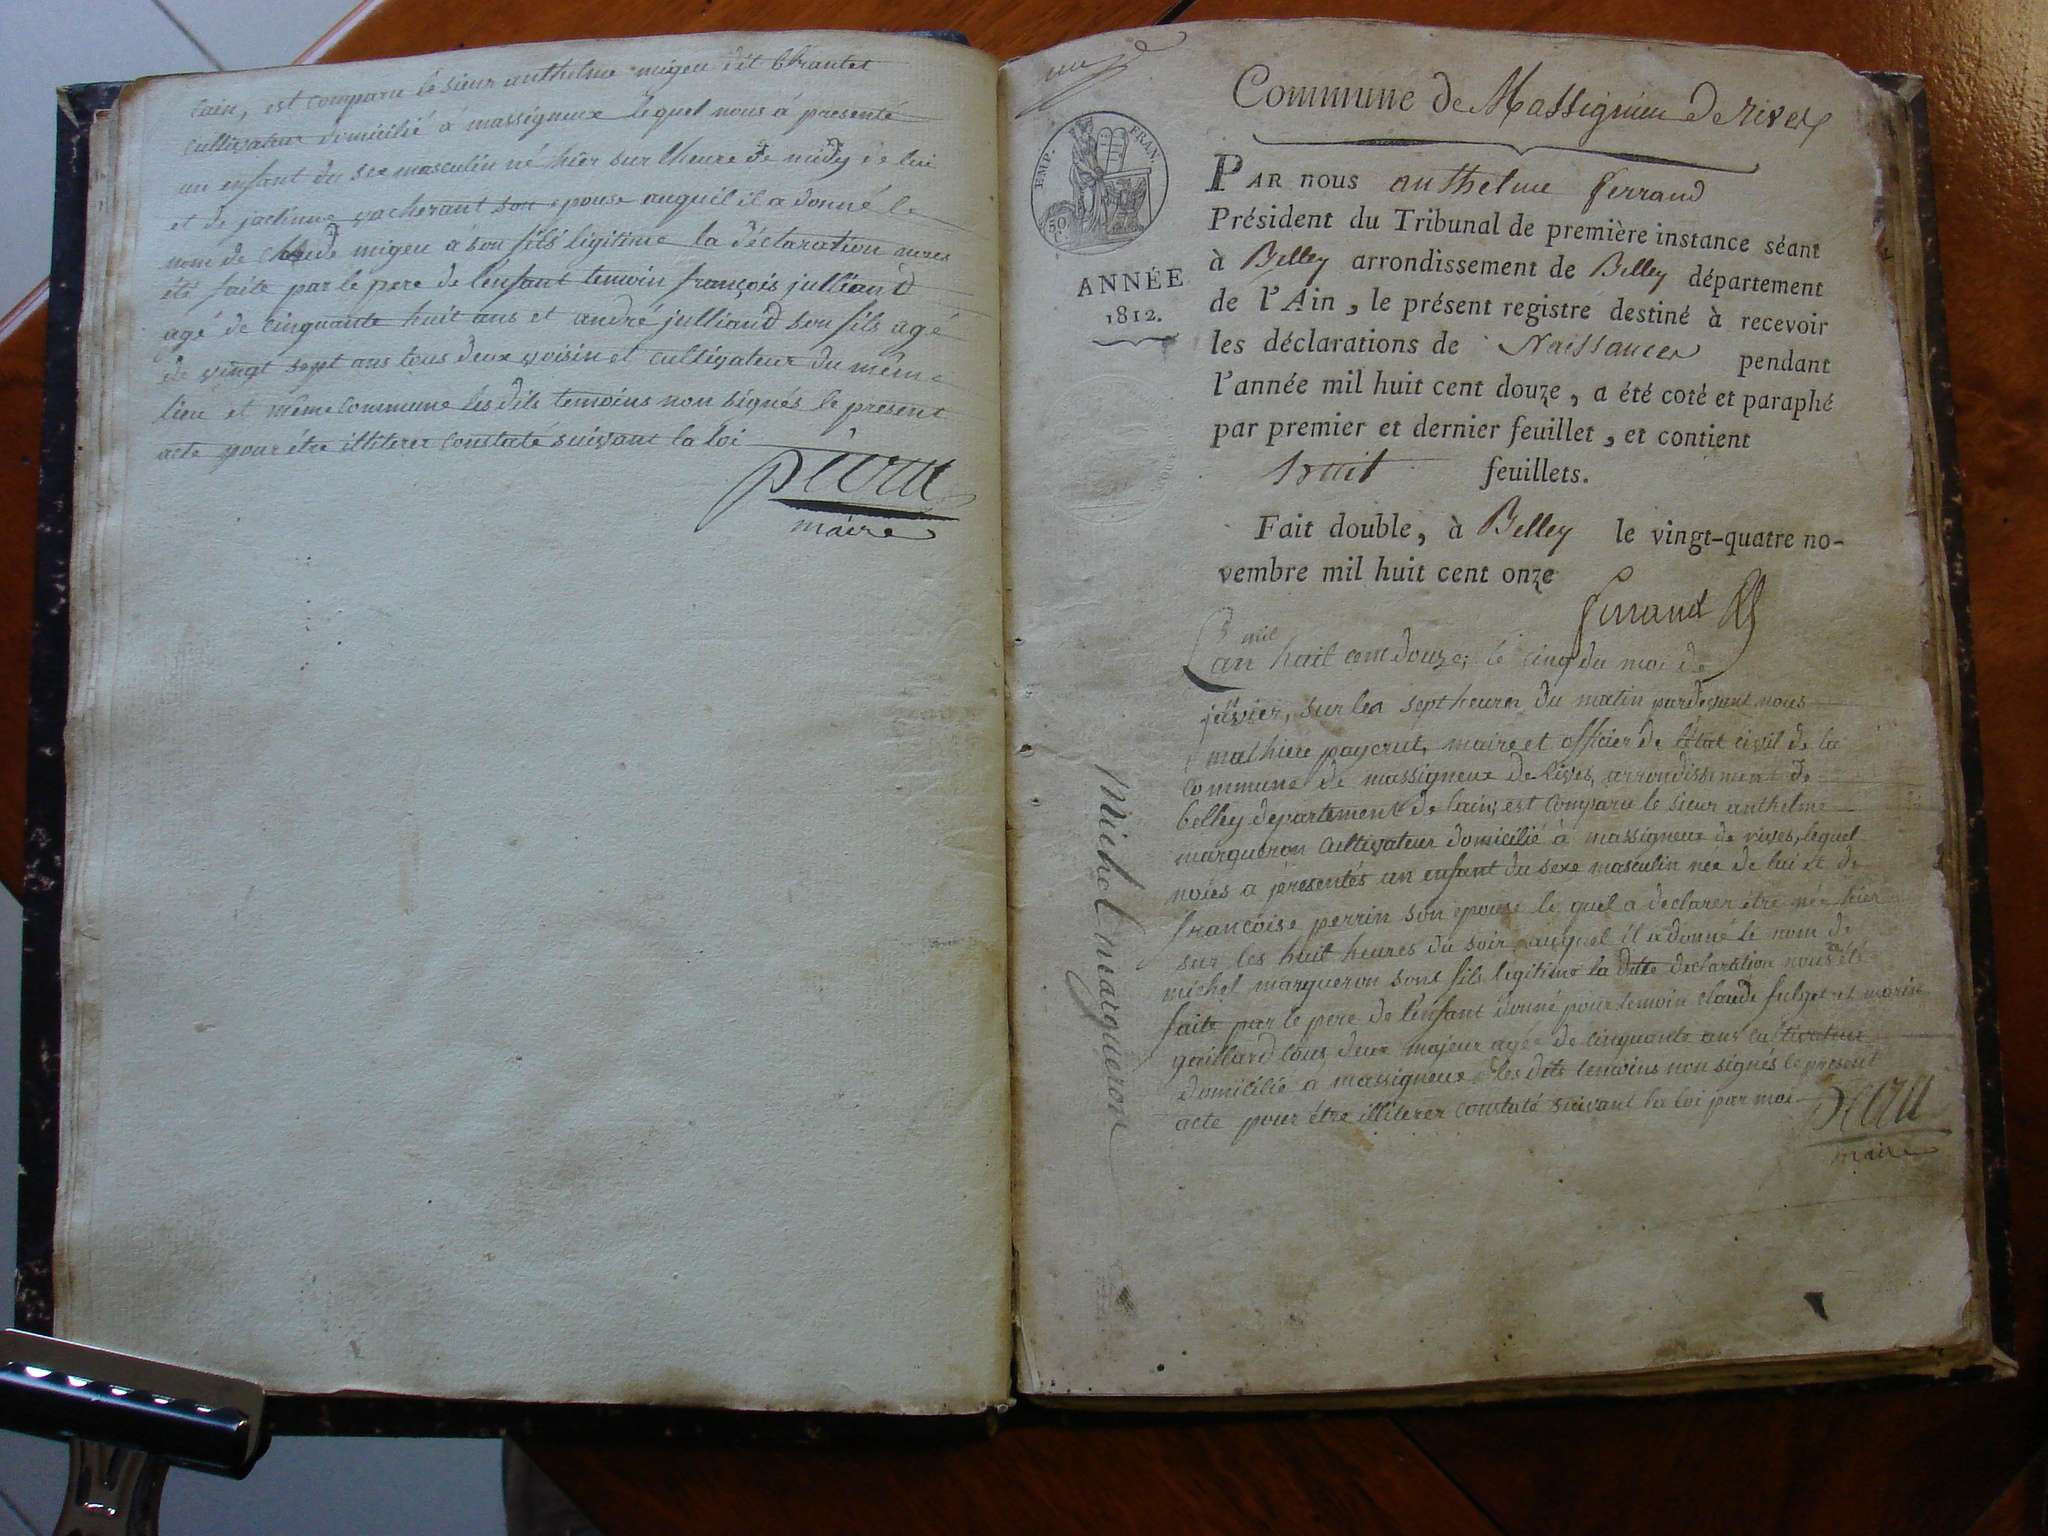 lain, est comparu le sieur anthelme migeu dit Chrantet
cultivateur domicilié á massigneux lequel nous á presenté
un enfant du sex masculin né hier sur lheure de midy de lui
et de jaclinne vacherant son epouse auquil il a donné le
nom de claude migeu á son fils légitime la déclaration
été faite par le pere de lenfant temoin françois julliand
agé de cinquante huit ans et andré julliand son fils agé
de vingt sept ans tous deux voisin et cultivateur du même
lieu et même commune les dits temoins non signés le present
acte pour étre illiterer constaté suivant la loi
maire
Commune de Massignieu de rives
EMP. FRAN.
50 C.
ANNÉE
1812.
PAR nous anthelme ferrand
Président du Tribunal de première instance séant
à Belley arrondissement de Belley département
de l'Ain, le présent registre destiné à recevoir
les déclarations de Naissances pendant
l'année mil huit cent douze, a été coté et paraphé
par premier et dernier feuillet, et contient
huit feuillets.
Fait double, à Belley le vingt-quatre no-
vembre mil huit cent onze
ferrand
mil
Lan huit cent douze; le cinq du moi de
javier, sur les sept heures du matin pardevant nous
mathieu paycrut, maire et officier de létat civil de la
commune de massigneux de Rives, arrondissement de
belley departement de lain, est comparu le sieur anthelme
margueron cultivateur domicilié à massigneux de rives, lequel
nous a presentés un enfant du sexe masculin née de lui et de
françoise perrin son epouse le quel a declarer étre née hier
sur les huit heures du soir, auquel il a donné le nom de
michel margueron sont fils legitime la ditte declaration nous a été
faite par le pere de lenfant donné pour temoin claude fulget et morin
gaillard tous deux majeur agé de cinquante ans cultivateur
domicilié a massigneux les dits temoins non signés le present
acte pour étre illiterer constaté suivant la loi par moi
maire
Michel margueron